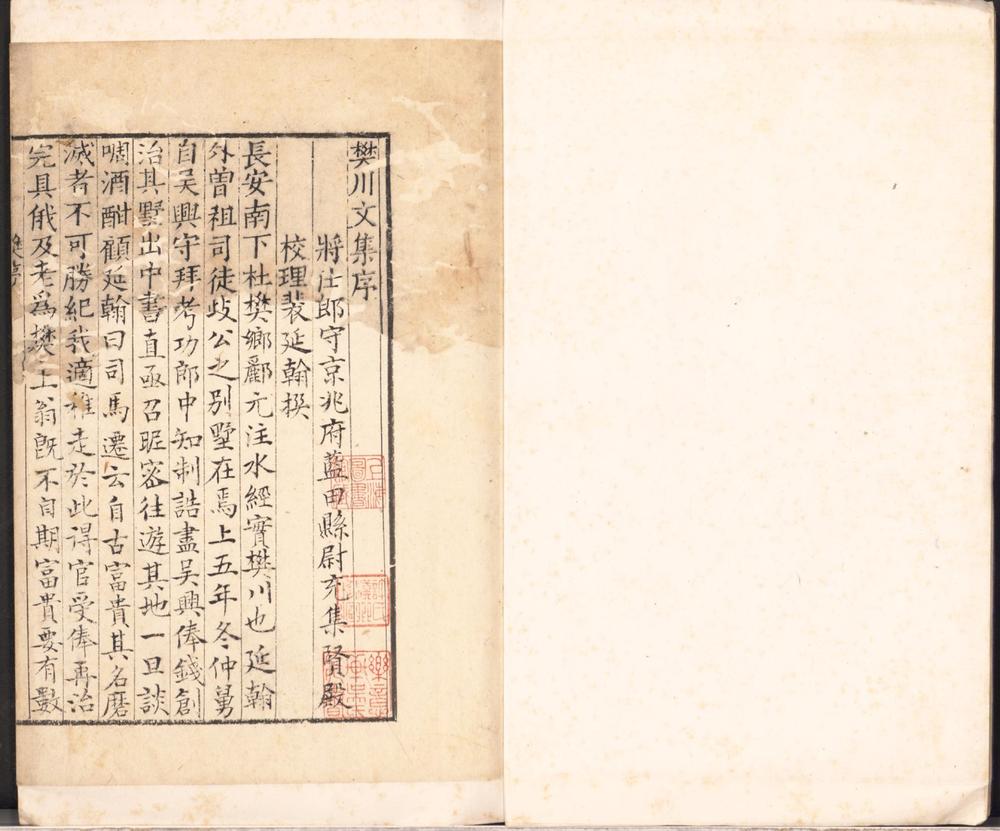 樊川文集序
將仕郎守京兆府藍田縣尉充集賢殿
校理裴延翰撰
長安南下杜樊鄉酈元注水經實樊川也延翰
外曾祖司徒歧公之别墅在焉上五年冬仲舅
自吳興守拜考功郎中知制誥盡吳興俸錢創
治其墅出中書直亟召昵密往遊其地一旦談
啁酒酣顧延翰曰司馬遷云自古富貴其名磨
滅者不可勝紀我適稚走於此得官受俸再治
完具俄及老爲樊上翁旣不自期富貴要有數
樊序